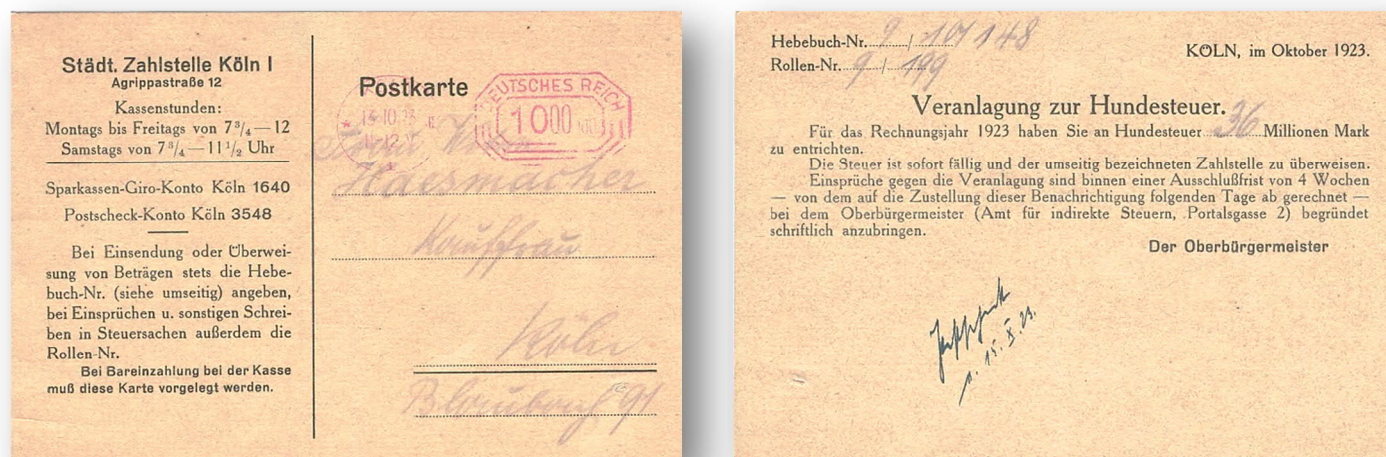 Städt. Zahlstelle Köln I
Agrippastraße 12
Kassenstunden:
Montags bis Freitags von 7 3/4 — 12
Samstags von 7 3/4 — 11 1/2 Uhr
Sparkassen-Giro-Konto Köln 1640
Postscheck-Konto Köln 3548
Bei Einsendung oder Überwei-
sung von Beträgen stets die Hebe-
buch-Nr. (siehe umseitig) angeben,
bei Einsprüchen u. sonstigen Schrei-
ben in Steuersachen außerdem die
Rollen-Nr.
Bei Bareinzahlung bei der Kasse
muß diese Karte vorgelegt werden.
Postkarte
DEUTSCHES REICH
1000
13.10.23
11-12
Kauffrau
Köln
91
Hebebuch-Nr. 9 / 101148
Rollen-Nr. 9 / 199
KÖLN, im Oktober 1923.
Veranlagung zur Hundesteuer.
Für das Rechnungsjahr 1923 haben Sie an Hundesteuer 36 Millionen Mark
zu entrichten.
Die Steuer ist sofort fällig und der umseitig bezeichneten Zahlstelle zu überweisen.
Einsprüche gegen die Veranlagung sind binnen einer Ausschlußfrist von 4 Wochen
— von dem auf die Zustellung dieser Benachrichtigung folgenden Tage ab gerechnet —
bei dem Oberbürgermeister (Amt für indirekte Steuern, Portalsgasse 2) begründet
schriftlich anzubringen.
Der Oberbürgermeister
15. X. 23.